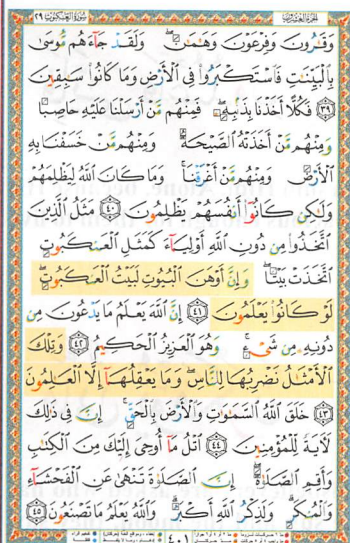 الجزء العشرون سورة العنكبوت ٢٩
وَقَٰرُونَ وَفِرْعَوْنَ وَهَٰمَٰنَ ۖ وَلَقَدْ جَآءَهُم مُّوسَىٰ
بِٱلْبَيِّنَٰتِ فَٱسْتَكْبَرُوا۟ فِى ٱلْأَرْضِ وَمَا كَانُوا۟ سَٰبِقِينَ
۝٣٩ فَكُلًّا أَخَذْنَا بِذَنۢبِهِۦ ۖ فَمِنْهُم مَّنْ أَرْسَلْنَا عَلَيْهِ حَاصِبًا
وَمِنْهُم مَّنْ أَخَذَتْهُ ٱلصَّيْحَةُ وَمِنْهُم مَّنْ خَسَفْنَا بِهِ
ٱلْأَرْضَ وَمِنْهُم مَّنْ أَغْرَقْنَا ۚ وَمَا كَانَ ٱللَّهُ لِيَظْلِمَهُمْ
وَلَٰكِن كَانُوٓا۟ أَنفُسَهُمْ يَظْلِمُونَ ۝٤٠ مَثَلُ ٱلَّذِينَ
ٱتَّخَذُوا۟ مِن دُونِ ٱللَّهِ أَوْلِيَآءَ كَمَثَلِ ٱلْعَنكَبُوتِ
ٱتَّخَذَتْ بَيْتًا ۖ وَإِنَّ أَوْهَنَ ٱلْبُيُوتِ لَبَيْتُ ٱلْعَنكَبُوتِ ۖ
لَوْ كَانُوا۟ يَعْلَمُونَ ۝٤١ إِنَّ ٱللَّهَ يَعْلَمُ مَا يَدْعُونَ مِن
دُونِهِۦ مِن شَىْءٍ ۚ وَهُوَ ٱلْعَزِيزُ ٱلْحَكِيمُ ۝٤٢ وَتِلْكَ
ٱلْأَمْثَٰلُ نَضْرِبُهَا لِلنَّاسِ ۖ وَمَا يَعْقِلُهَآ إِلَّا ٱلْعَٰلِمُونَ
۝٤٣ خَلَقَ ٱللَّهُ ٱلسَّمَٰوَٰتِ وَٱلْأَرْضَ بِٱلْحَقِّ ۚ إِنَّ فِى ذَٰلِكَ
لَءَايَةً لِّلْمُؤْمِنِينَ ۝٤٤ ٱتْلُ مَآ أُوحِىَ إِلَيْكَ مِنَ ٱلْكِتَٰبِ
وَأَقِمِ ٱلصَّلَوٰةَ ۖ إِنَّ ٱلصَّلَوٰةَ تَنْهَىٰ عَنِ ٱلْفَحْشَآءِ
وَٱلْمُنكَرِ ۗ وَلَذِكْرُ ٱللَّهِ أَكْبَرُ ۗ وَٱللَّهُ يَعْلَمُ مَا تَصْنَعُونَ ۝٤٥
٤٠١